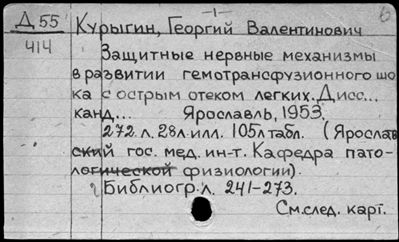 -1-
Д 55
414
Курыгин, Георгий Валентинович
Защитные нервные механизмы
в развитии гемотрансфузионного шо
ка с острым отеком легких. Дисс...
канд... Ярославль, 1953.
272 л. 28л илл. 105л табл. (Ярослав
ский гос. мед. ин-т. Кафедра пато-
логической физиологии).
Библиогр. л. 241-273.
См.след. карт.